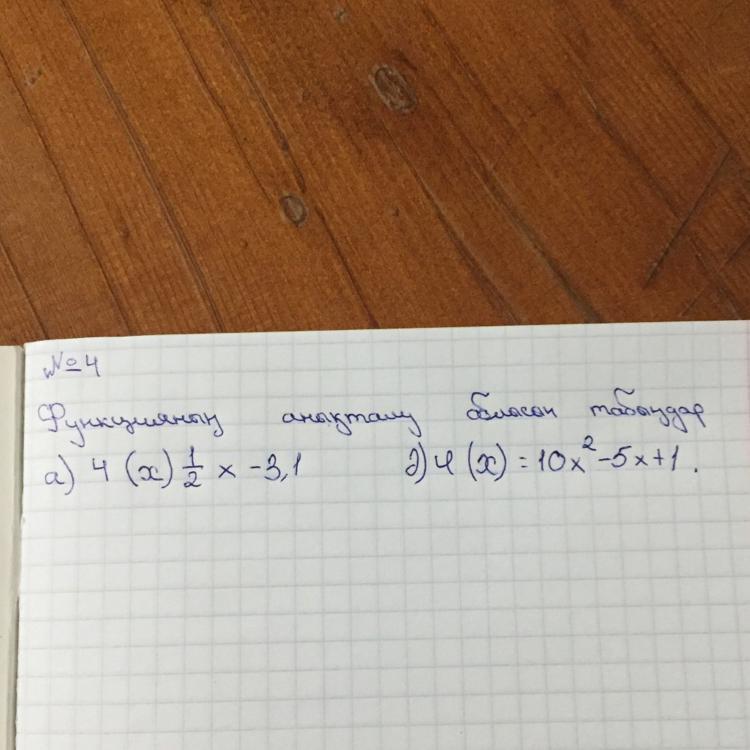 №4
Функцияның анықталу облысын табыңдар
а) 4 (х) 1/2 х -3,1 д) 4 (х) = 10х²-5х+1.